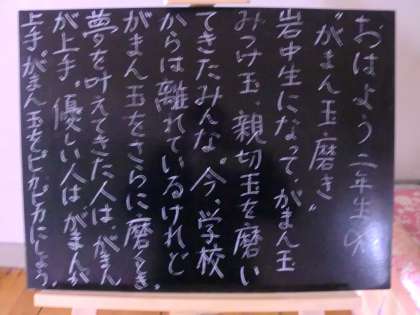 おはよう二年生の
〝がまん玉磨き〟
岩中生になって、がまん玉
みつけ玉、親切玉を磨い
てきたみんな。今、学校
からは離れているけれど
がまん玉をさらに磨くとき。
夢を叶えてきた人は、がまん
が上手。優しい人はがまんが
上手。がまん玉をピカピカにしよう。